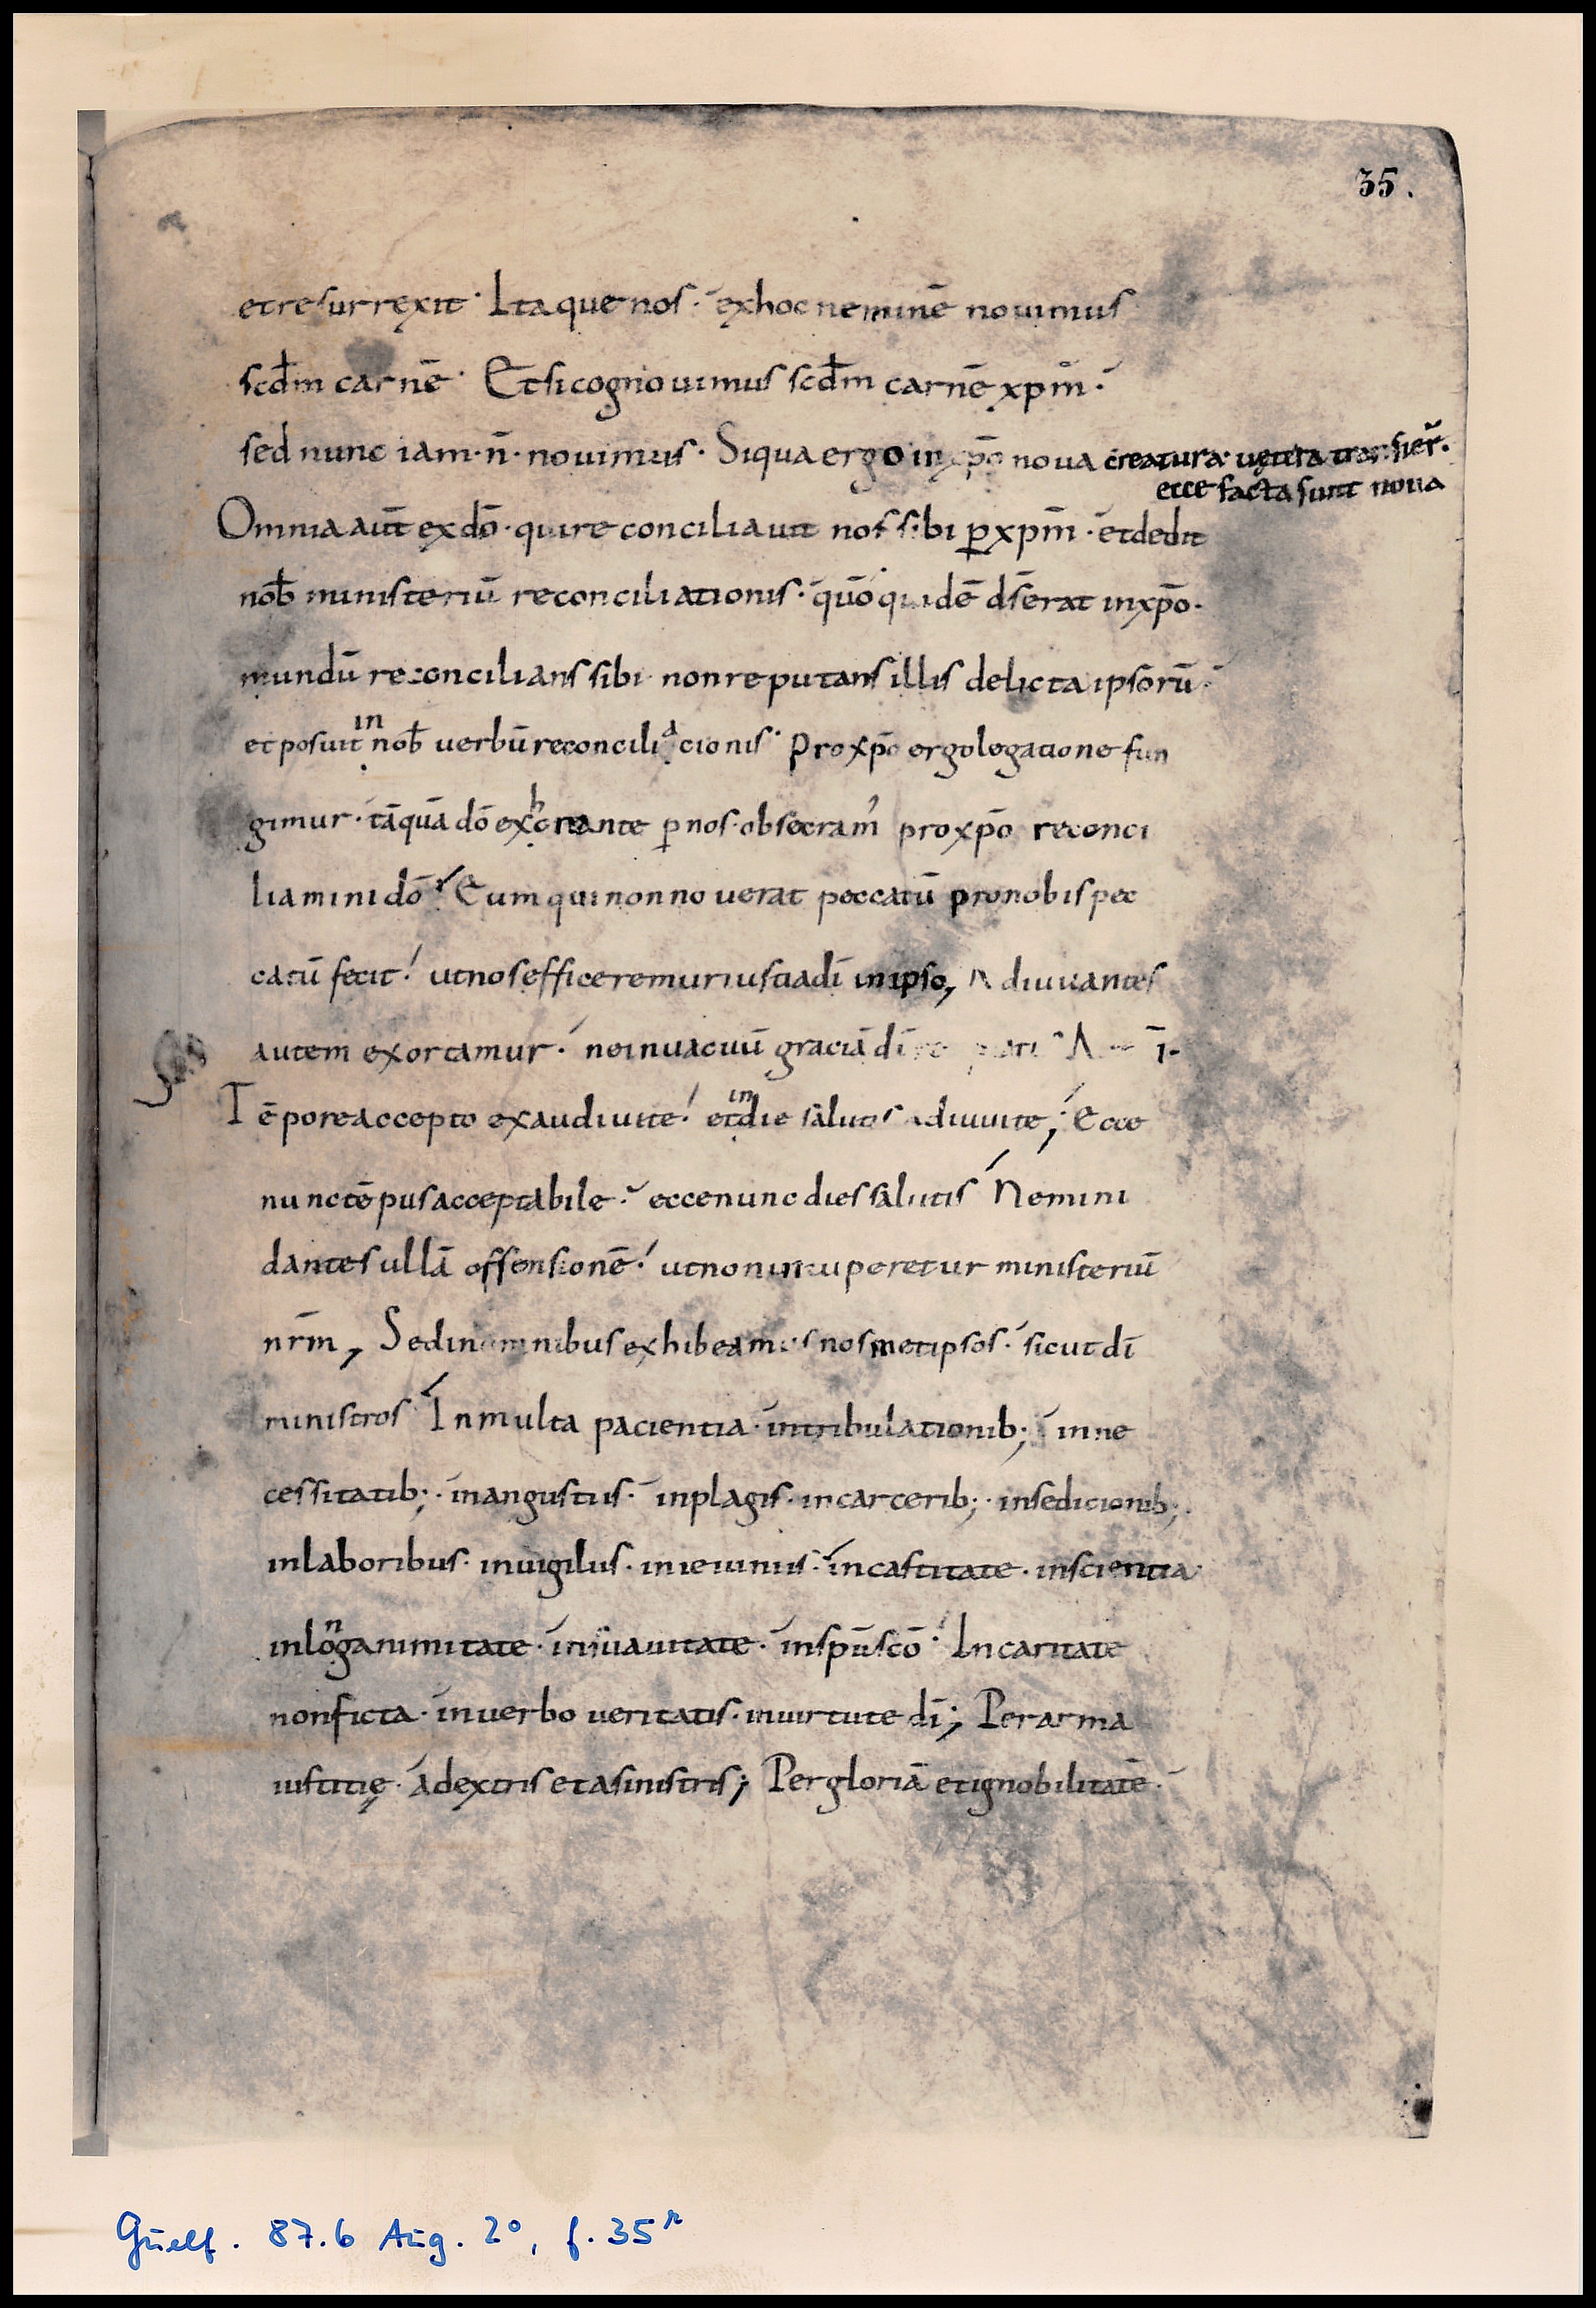 35.
et resurrexit · Itaque nos · ex hoc neminē nouimus
scđm carnē · Et si cognouimus scđm carnē xp̄m ·
sed nunc iam · n̄ · nouimus · Si qua ergo in xp̄o noua creatura · uetera transier̄ ·
ecce facta sunt noua
Omnia aūt ex dō · qui reconciliauit nos sibi ꝑ xp̄m · et dedit
nob̄ ministeriū reconciliationis · quō quidē ds̄ erat in xp̄o ·
mundū reconcilians sibi non reputans illis delicta ipsorū ·
et posuit in nob̄ uerbū reconciliacionis · Pro xp̄o ergo legatione fun
gimur · tāquā dō exhortante ꝑ nos · obsecram' pro xp̄o reconci
liamini dō · Eum qui non nouerat peccatū pro nobis pec
catū fecit · ut nos efficeremur iusticia dī in ipso, Adiuuantes
autem exortamur · ne in uacuū graciā dī
Tēpore accepto exaudiui te · et in die salutis adiuui te; Ecce
nunc tēpus acceptabile · ecce nunc dies salutis Nemini
dantes ullā offensionē · ut non uituperetur ministeriū
nr̄m, Sed in omnibus exhibeamus nosmetipsos · sicut dī
ministros In multa pacientia · in tribulationib; in ne
cessitatib; · in angustiis · in plagis · in carcerib; · in sedicionib;
in laboribus · in uigiliis · in ieiuniis · in castitate · in scientia
in longanimitate · in suauitate · in sp̄u scō · In caritate
non ficta · in uerbo ueritatis · in uirtute dī; Per arma
iustitię · a dextris et a sinistris; Per gloriā et ignobilitatē ·
Guelf. 87.6 Aug. 2°, f. 35ʳ